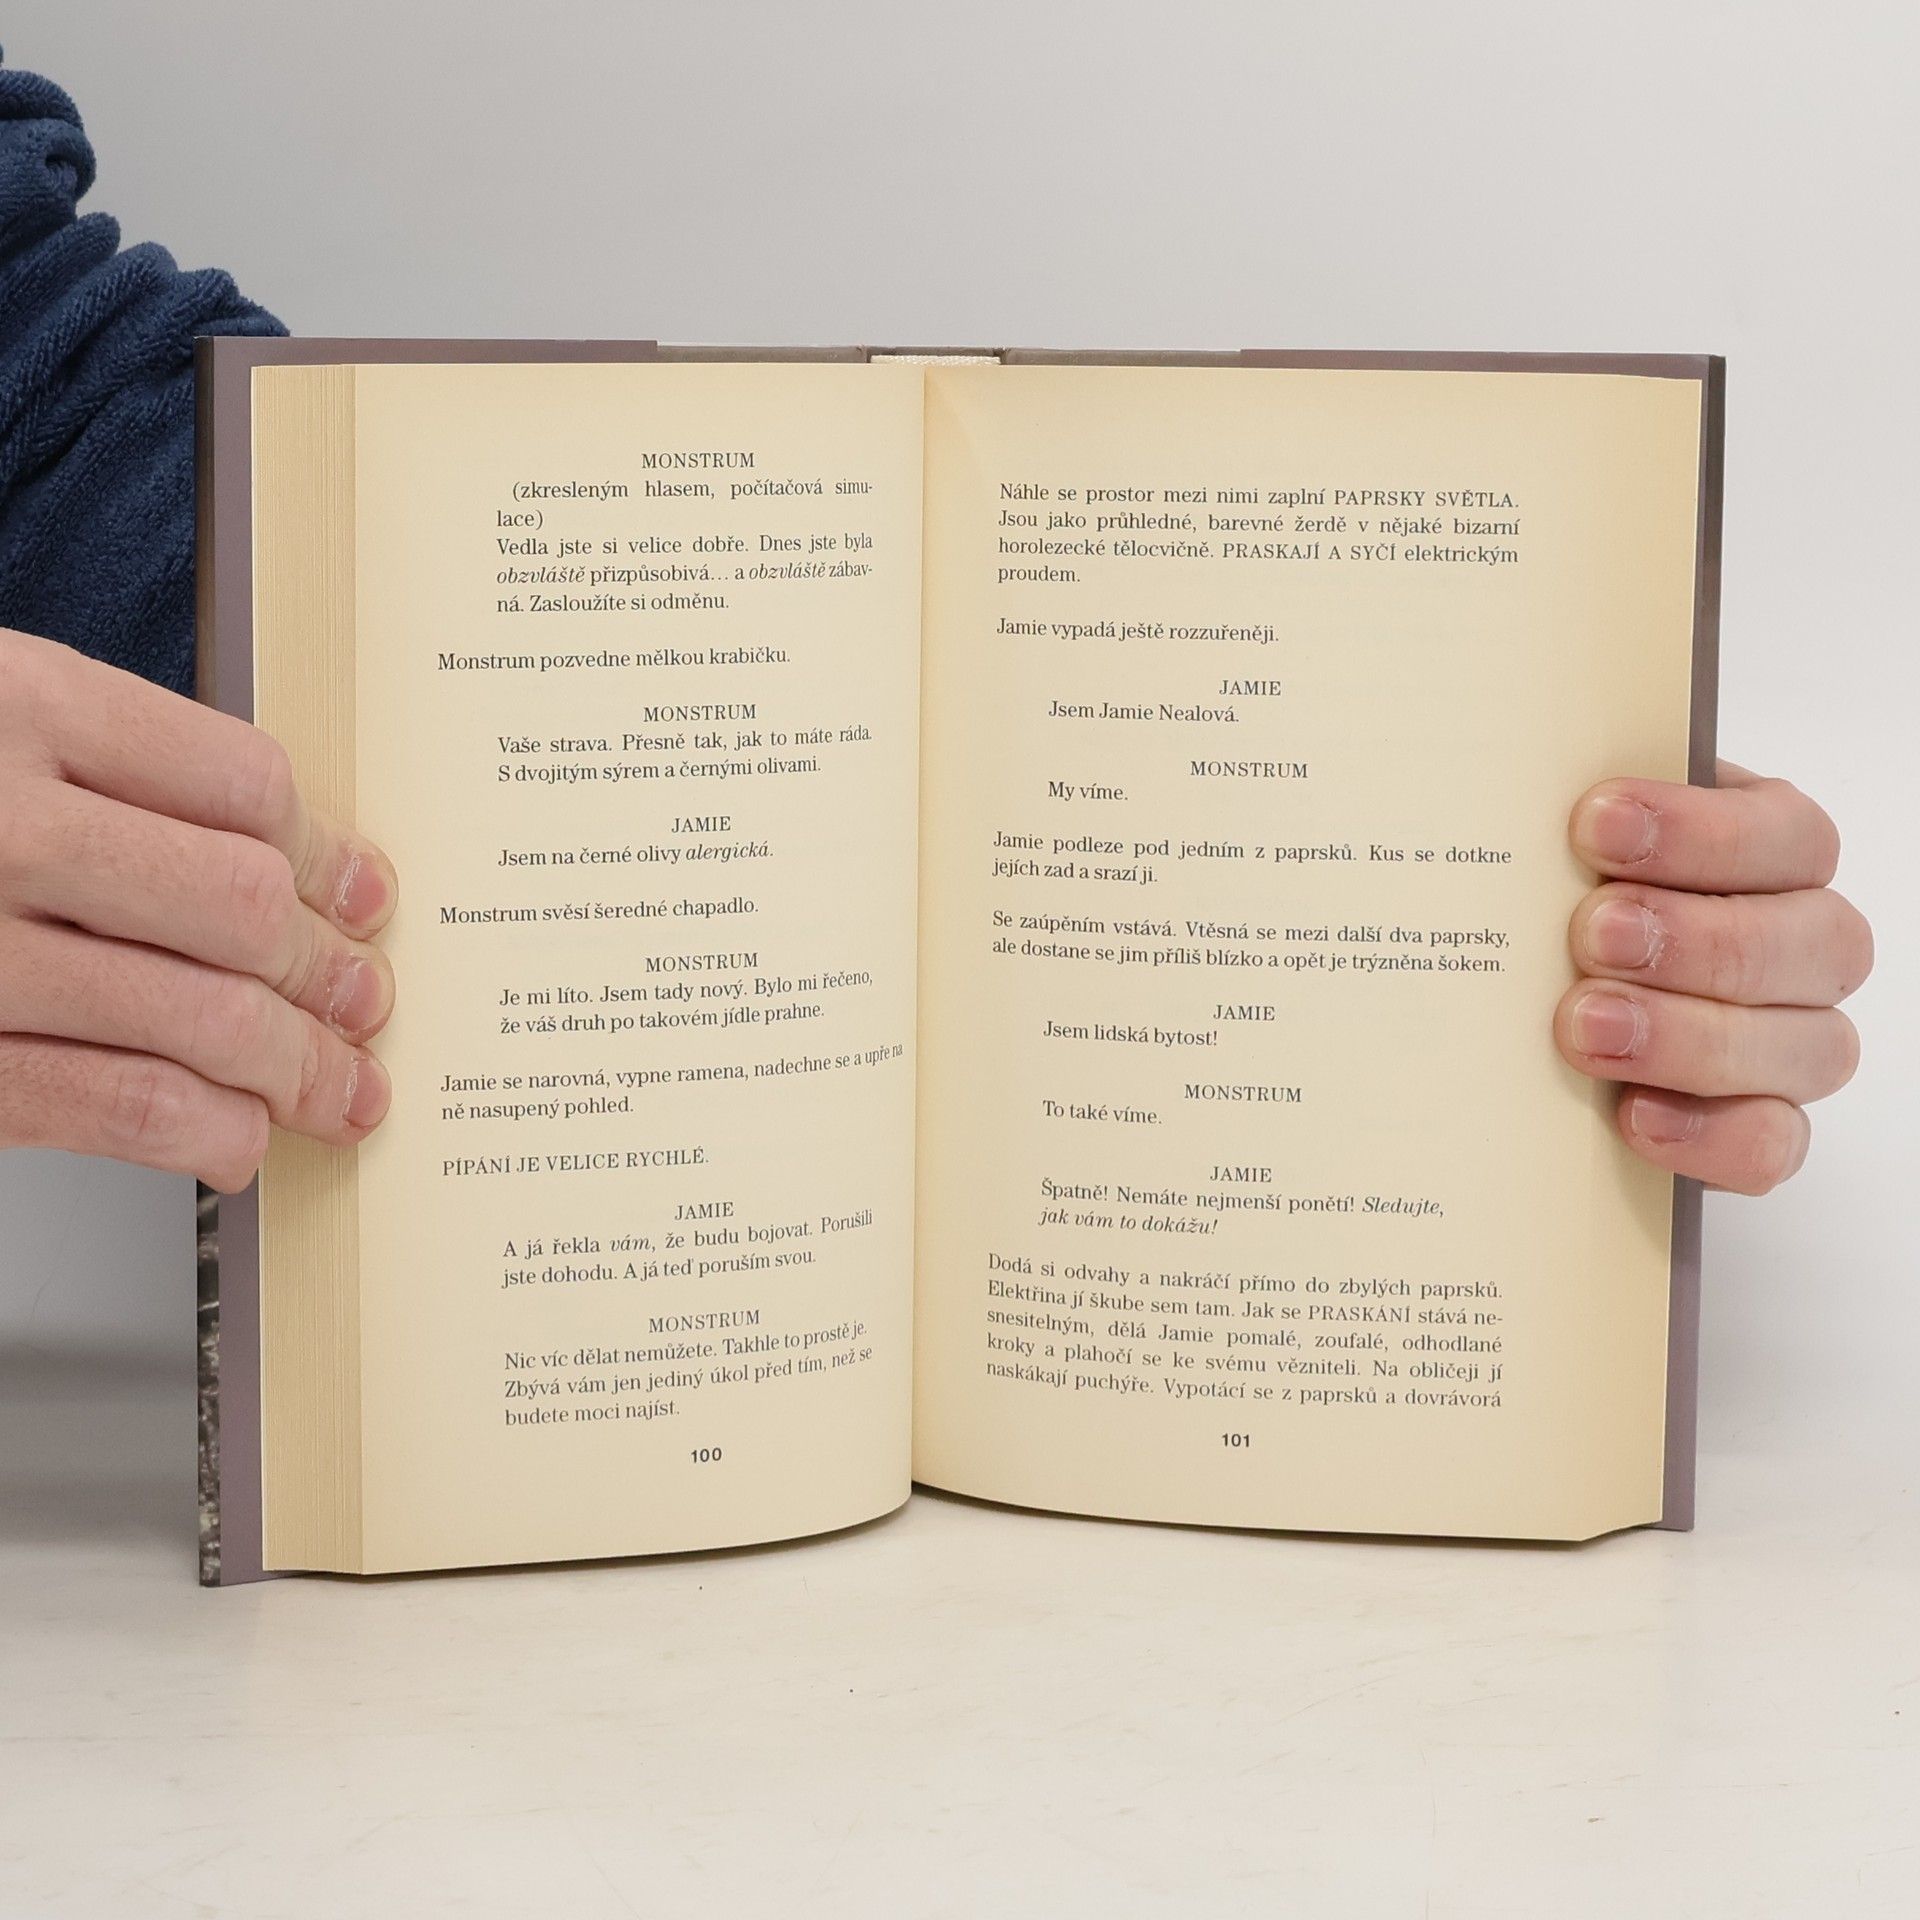 MONSTRUM
(zkresleným hlasem, počítačová simu-
lace)
Vedla jste si velice dobře. Dnes jste byla
obzvláště přizpůsobivá... a obzvláště zábav-
ná. Zasloužíte si odměnu.
Monstrum pozvedne mělkou krabičku.
MONSTRUM
Vaše strava. Přesně tak, jak to máte ráda.
S dvojitým sýrem a černými olivami.
JAMIE
Jsem na černé olivy alergická.
Monstrum svěsí šeredné chapadlo.
MONSTRUM
Je mi líto. Jsem tady nový. Bylo mi řečeno,
že váš druh po takovém jídle prahne.
Jamie se narovná, vypne ramena, nadechne se a upře na
ně nasupený pohled.
PÍPÁNÍ JE VELICE RYCHLÉ.
JAMIE
A já řekla vám, že budu bojovat. Porušili
jste dohodu. A já teď poruším svou.
MONSTRUM
Nic víc dělat nemůžete. Takhle to prostě je.
Zbývá vám jen jediný úkol před tím, než se
budete moci najíst.
100
Náhle se prostor mezi nimi zaplní PAPRSKY SVĚTLA.
Jsou jako průhledné, barevné žerdě v nějaké bizarní
horolezecké tělocvičně. PRASKAJÍ A SYČÍ elektrickým
proudem.
Jamie vypadá ještě rozzuřeněji.
JAMIE
Jsem Jamie Nealová.
MONSTRUM
My víme.
Jamie podleze pod jedním z paprsků. Kus se dotkne
jejích zad a srazí ji.
Se zaúpěním vstává. Vtěsná se mezi další dva paprsky,
ale dostane se jim příliš blízko a opět je trýzněna šokem.
JAMIE
Jsem lidská bytost!
MONSTRUM
To také víme.
JAMIE
Špatně! Nemáte nejmenší ponětí! Sledujte,
jak vám to dokážu!
Dodá si odvahy a nakráčí přímo do zbylých paprsků.
Elektřina jí škube sem tam. Jak se PRASKÁNÍ stává ne-
snesitelným, dělá Jamie pomalé, zoufalé, odhodlané
kroky a plahočí se ke svému vězniteli. Na obličeji jí
naskákají puchýře. Vypotácí se z paprsků a dovrávorá
101